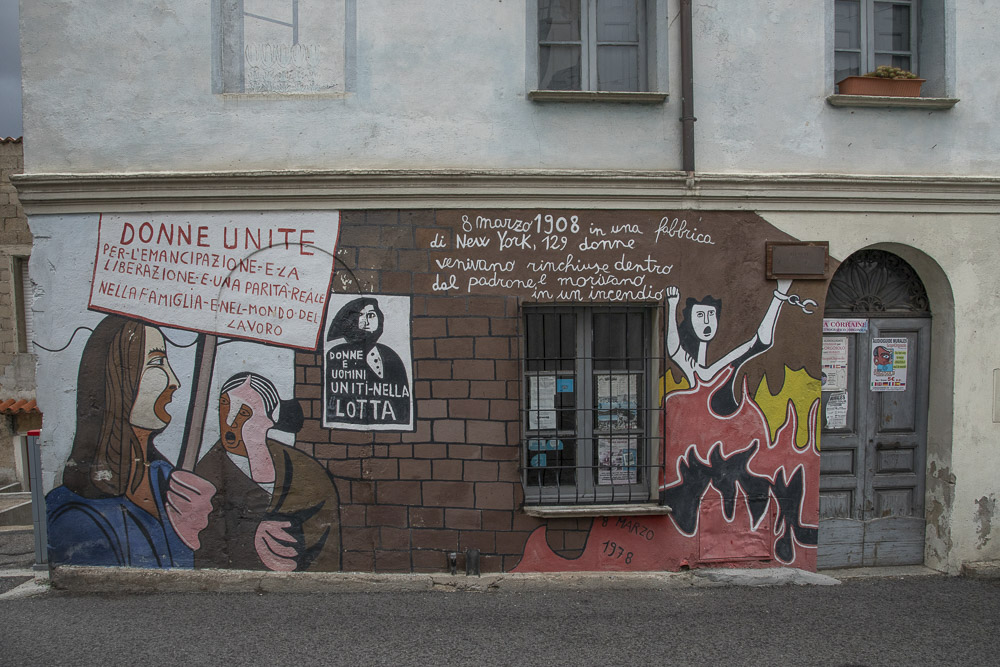 DONNE UNITE
PER-L'EMANCIPAZIONE-E-LA
LIBERAZIONE-E-UNA PARITÀ-REALE
NELLA FAMIGLIA-E-NEL-MONDO-DEL
LAVORO
DONNE
E
UOMINI
UNITI-NELLA
LOTTA
8 marzo 1908 in una fabbrica
di New York, 129 donne
venivano rinchiuse dentro
dal padrone, e morivano
in un incendio
8 MARZO
1978
AUDIOGUIDE MURALES